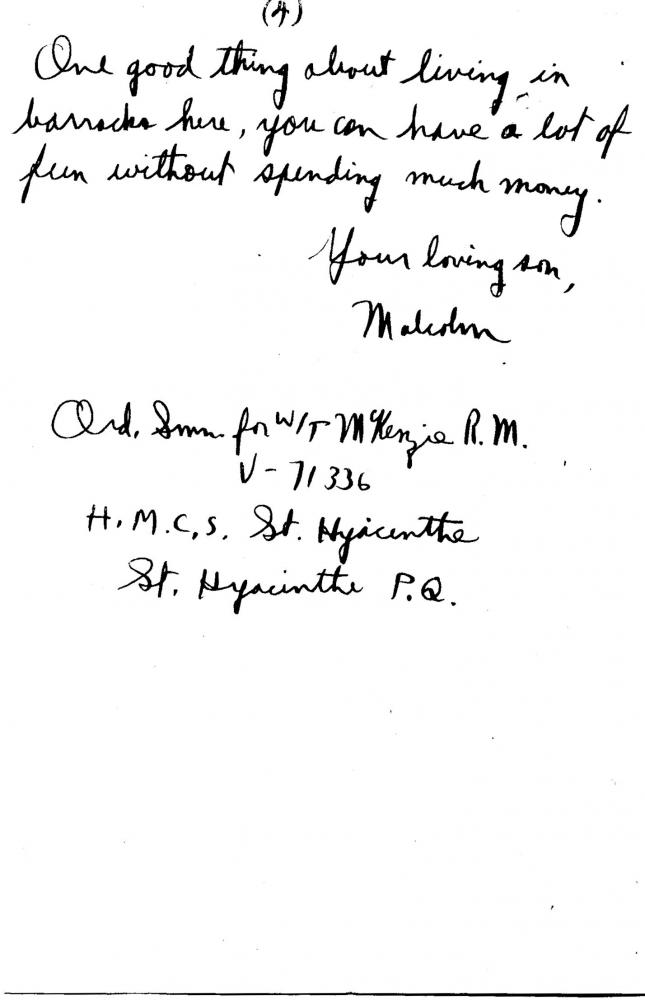 (4)
One good thing about living in
barracks here, you can have a lot of
fun without spending much money.
Your loving son,
Malcolm
Ord. Smn. for W/T McKenzie R.M.
V-71336
H.M.C.S. St. Hyacinthe
St. Hyacinthe P.Q.